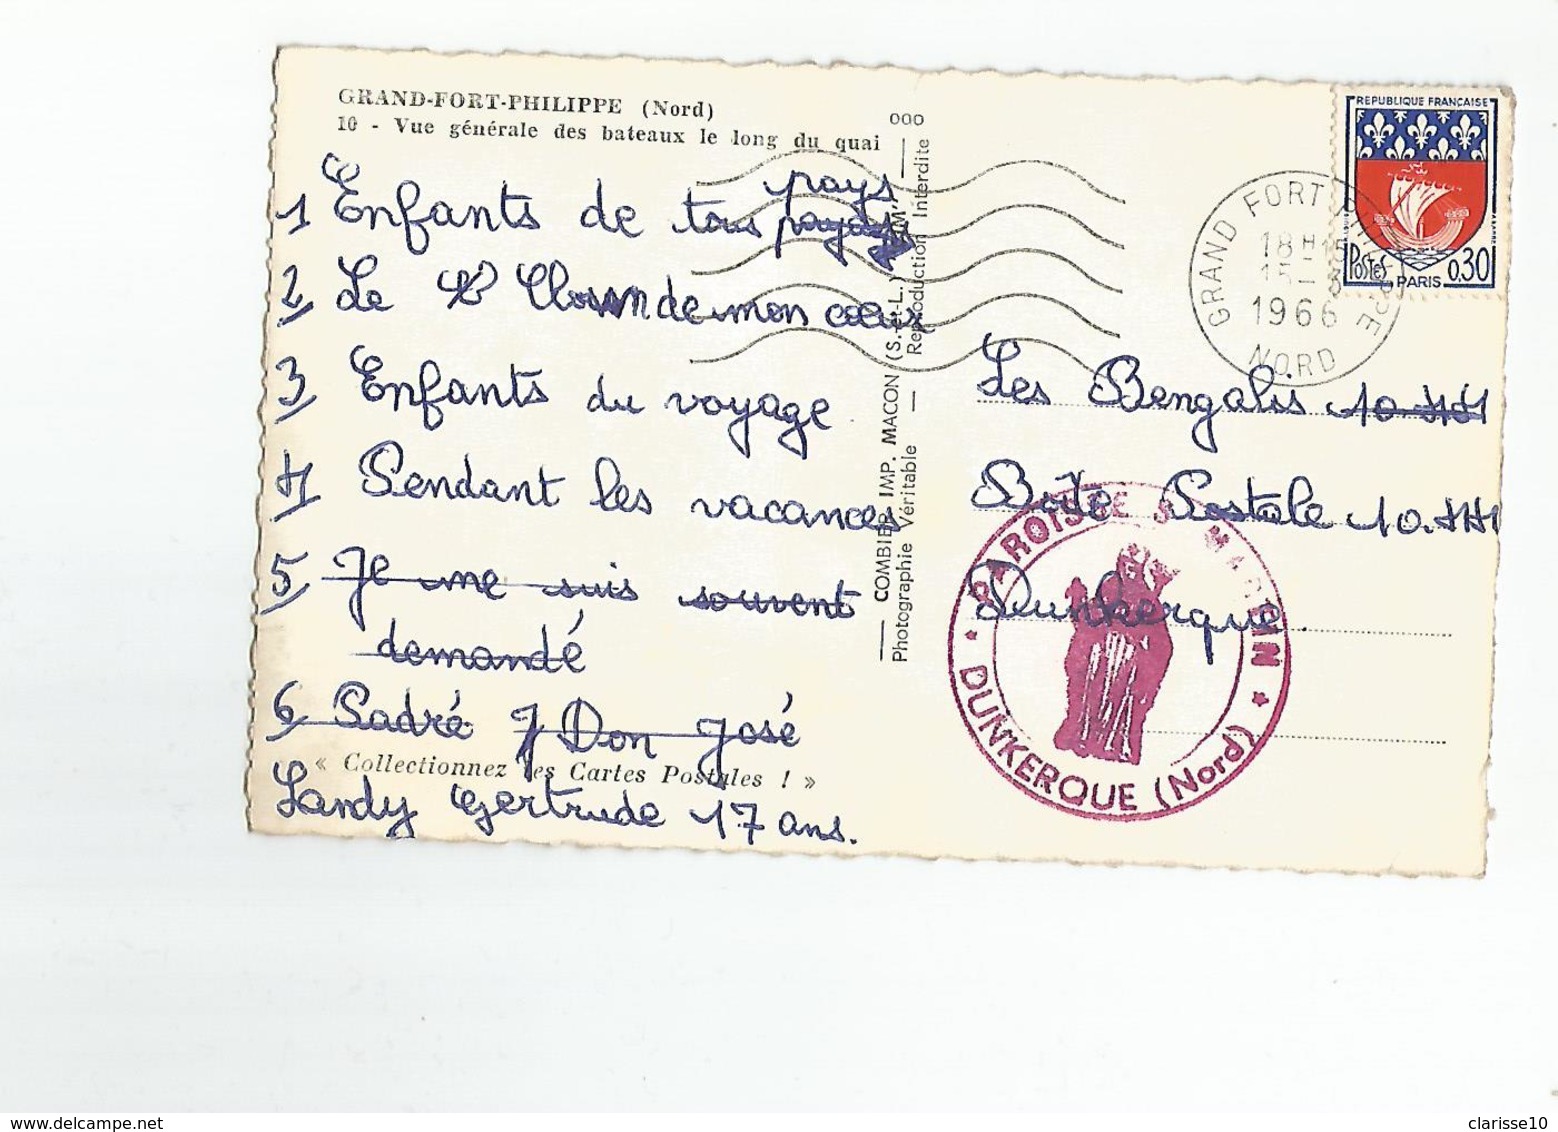 GRAND-FORT-PHILIPPE (Nord)
10 - Vue générale des bateaux le long du quai
1 Enfants de tous pays
2 Le Clown de mon cœur
3 Enfants du voyage
4 Pendant les vacances
5 Je me suis souvent
demandé
6 Padré Don José
« Collectionnez les Cartes Postales ! »
Landy Gertrude 17 ans.
COMBIER IMP. MACON (S.-et-L.) "CIM"
Photographie Véritable — Reproduction Interdite
000
REPUBLIQUE FRANÇAISE
POSTES 0,30
PARIS
GRAND FORT PHILIPPE
18H15
15-8
1966
NORD
Les Bengalis
Boîte Postale 10.441
Dunkerque
PAROISSE S MARTIN
* DUNKERQUE (Nord) *
clarisse10